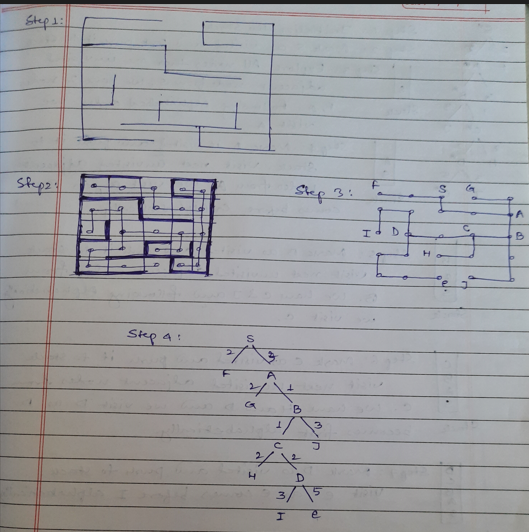 Step 1:
Step 2:
Step 3:
F S G
A
I D C B
H
e J
Step 4:
S
2 3
F A
2 1
G B
1 3
C J
2 2
H D
3 5
I e